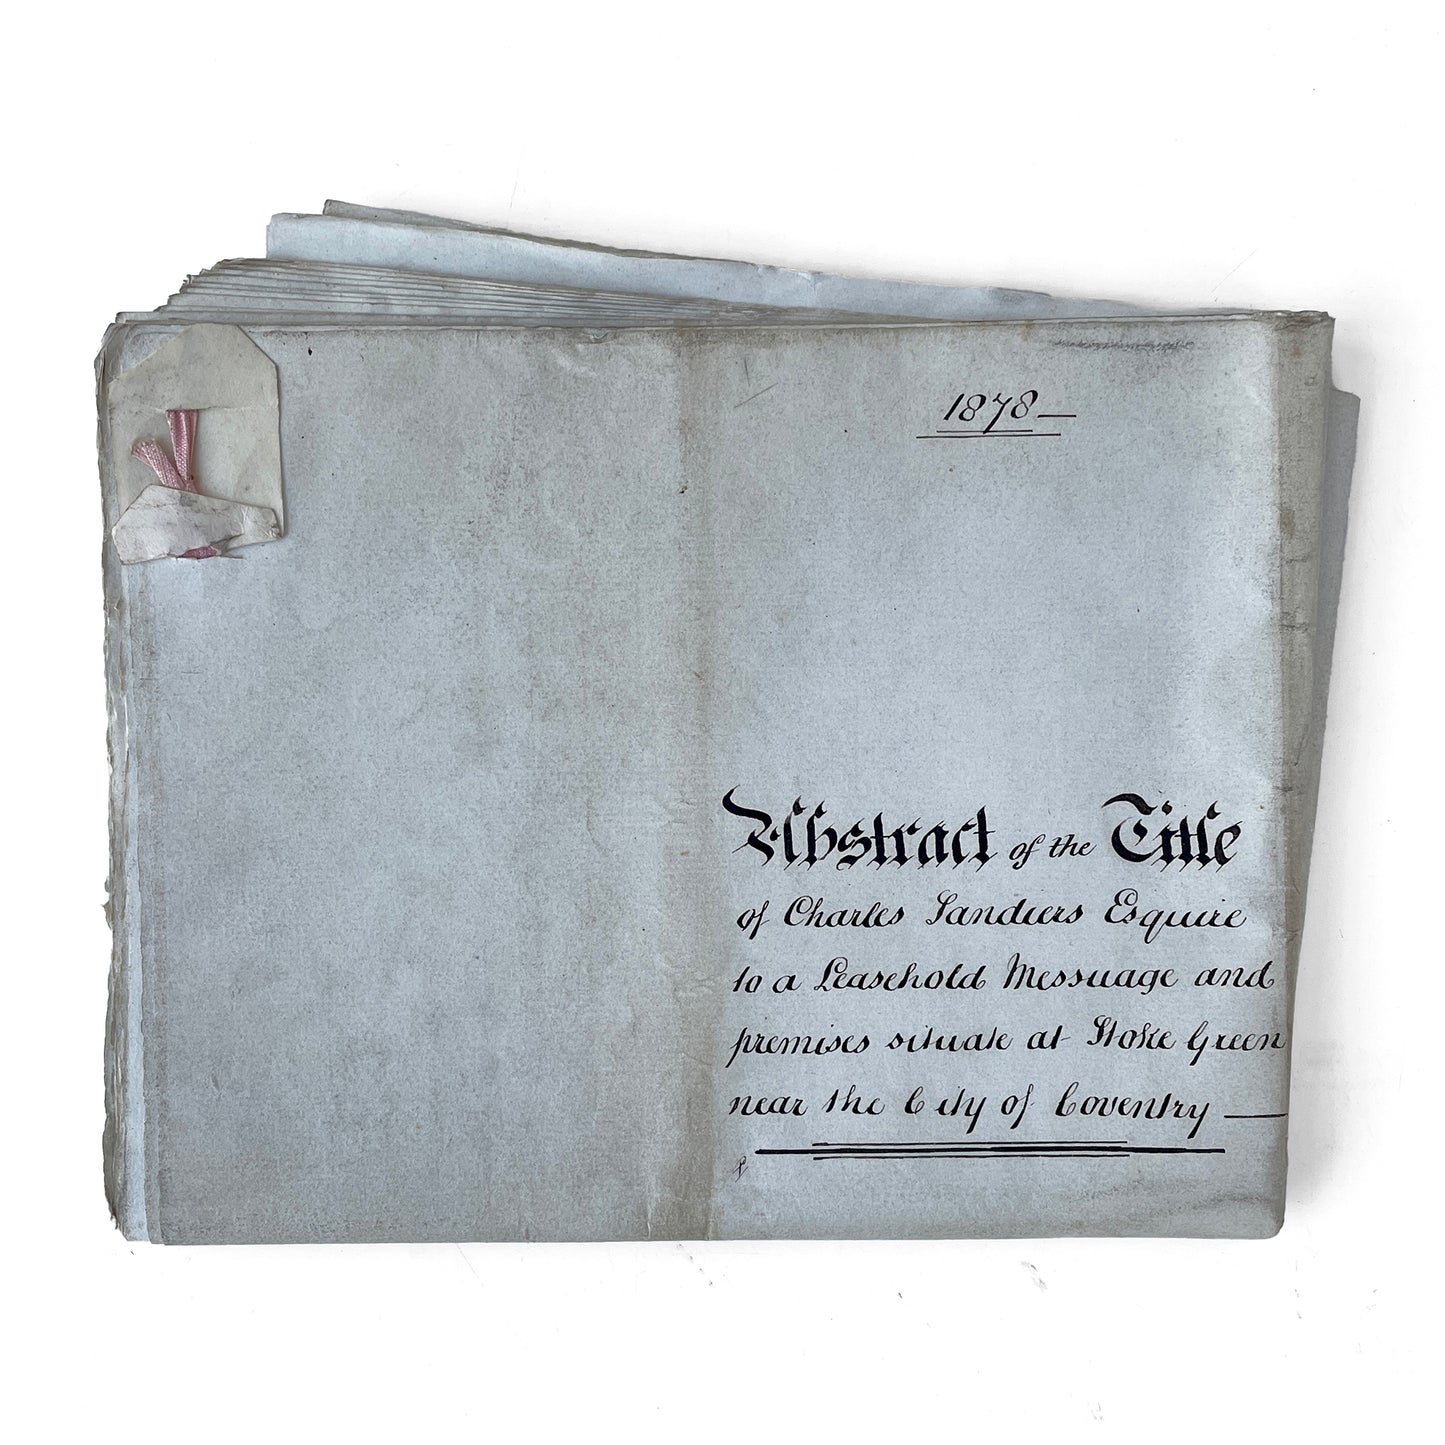 1878—
Abstract of the Title
of Charles Sanders Esquire
to a Leasehold Messuage and
premises situate at Stoke Green
near the City of Coventry —